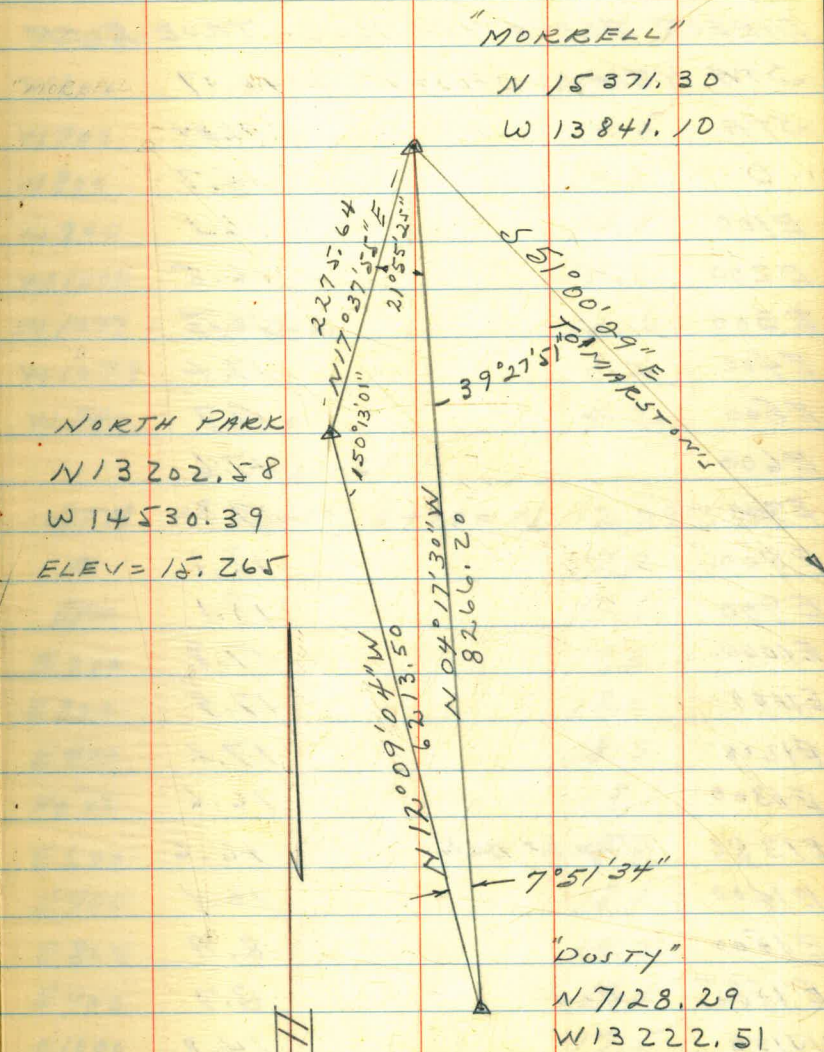 "MORRELL"
N 15371.30
W 13841.10
2275.64
N17°37'55"E
21°55'25"
S 51°00'29"E
TO MARSTON'S
39°27'51"
150°13'01"
NORTH PARK
N13202.58
W 14530.39
ELEV= 15.265
N 04°17'30"W
8266.20
N 12°09'04"W
6213.50
7°51'34"
"DOSTY"
N 7128.29
W13222.51